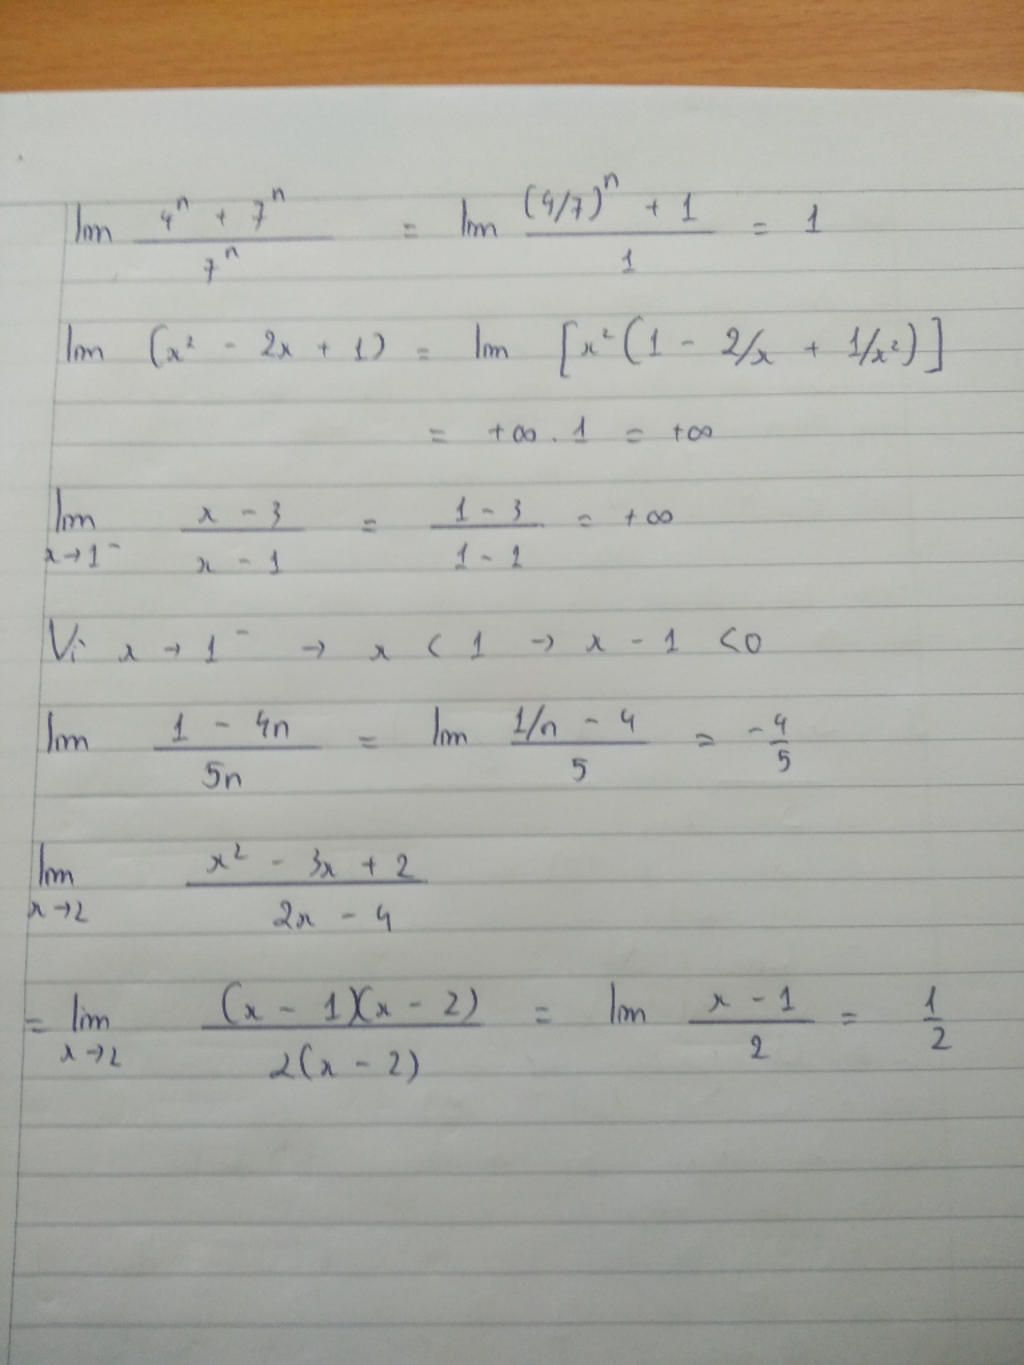 lim (4ⁿ + 7ⁿ)/7ⁿ = lim ((4/7)ⁿ + 1)/1 = 1
lim (x² - 2x + 1) = lim [x²(1 - 2/x + 1/x²)]
= +∞ . 1 = +∞
lim x→1⁻ (x - 3)/(x - 1) = (1 - 3)/(1 - 1) = +∞
Vì x → 1⁻ → x < 1 → x - 1 < 0
lim (1 - 4n)/5n = lim (1/n - 4)/5 = -4/5
lim x→2 (x² - 3x + 2)/(2x - 4)
= lim x→2 (x - 1)(x - 2)/2(x - 2) = lim (x - 1)/2 = 1/2